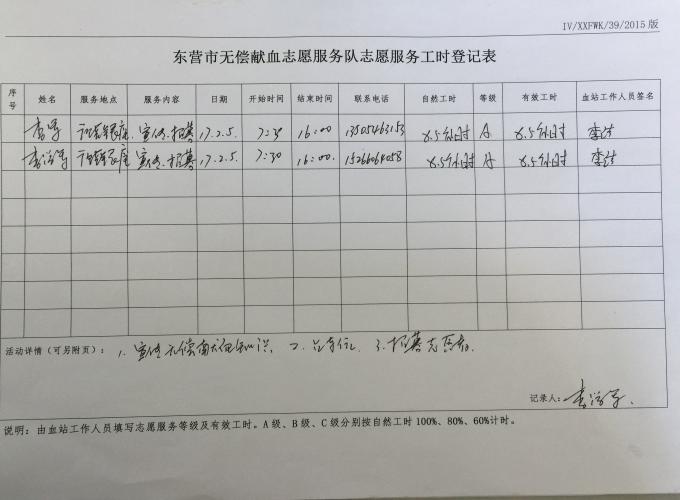 IV/XXFWK/39/2015 版
东营市无偿献血志愿服务队志愿服务工时登记表
序号 姓名 服务地点 服务内容 日期 开始时间 结束时间 联系电话 自然工时 等级 有效工时 血站工作人员签名
宣传、招募 17.2.5. 7:30 16:00 13505463153 8.5小时 A 8.5小时
宣传、招募 17.2.5. 7:30 16:00. 15266064058 8.5小时 A 8.5小时
活动详情（可另附页）： 1、宣传无偿献血知识、 2、 3、招募志愿者.
记录人：
说明：由血站工作人员填写志愿服务等级及有效工时。A 级、B 级、C 级分别按自然工时 100%、80%、60%计时。